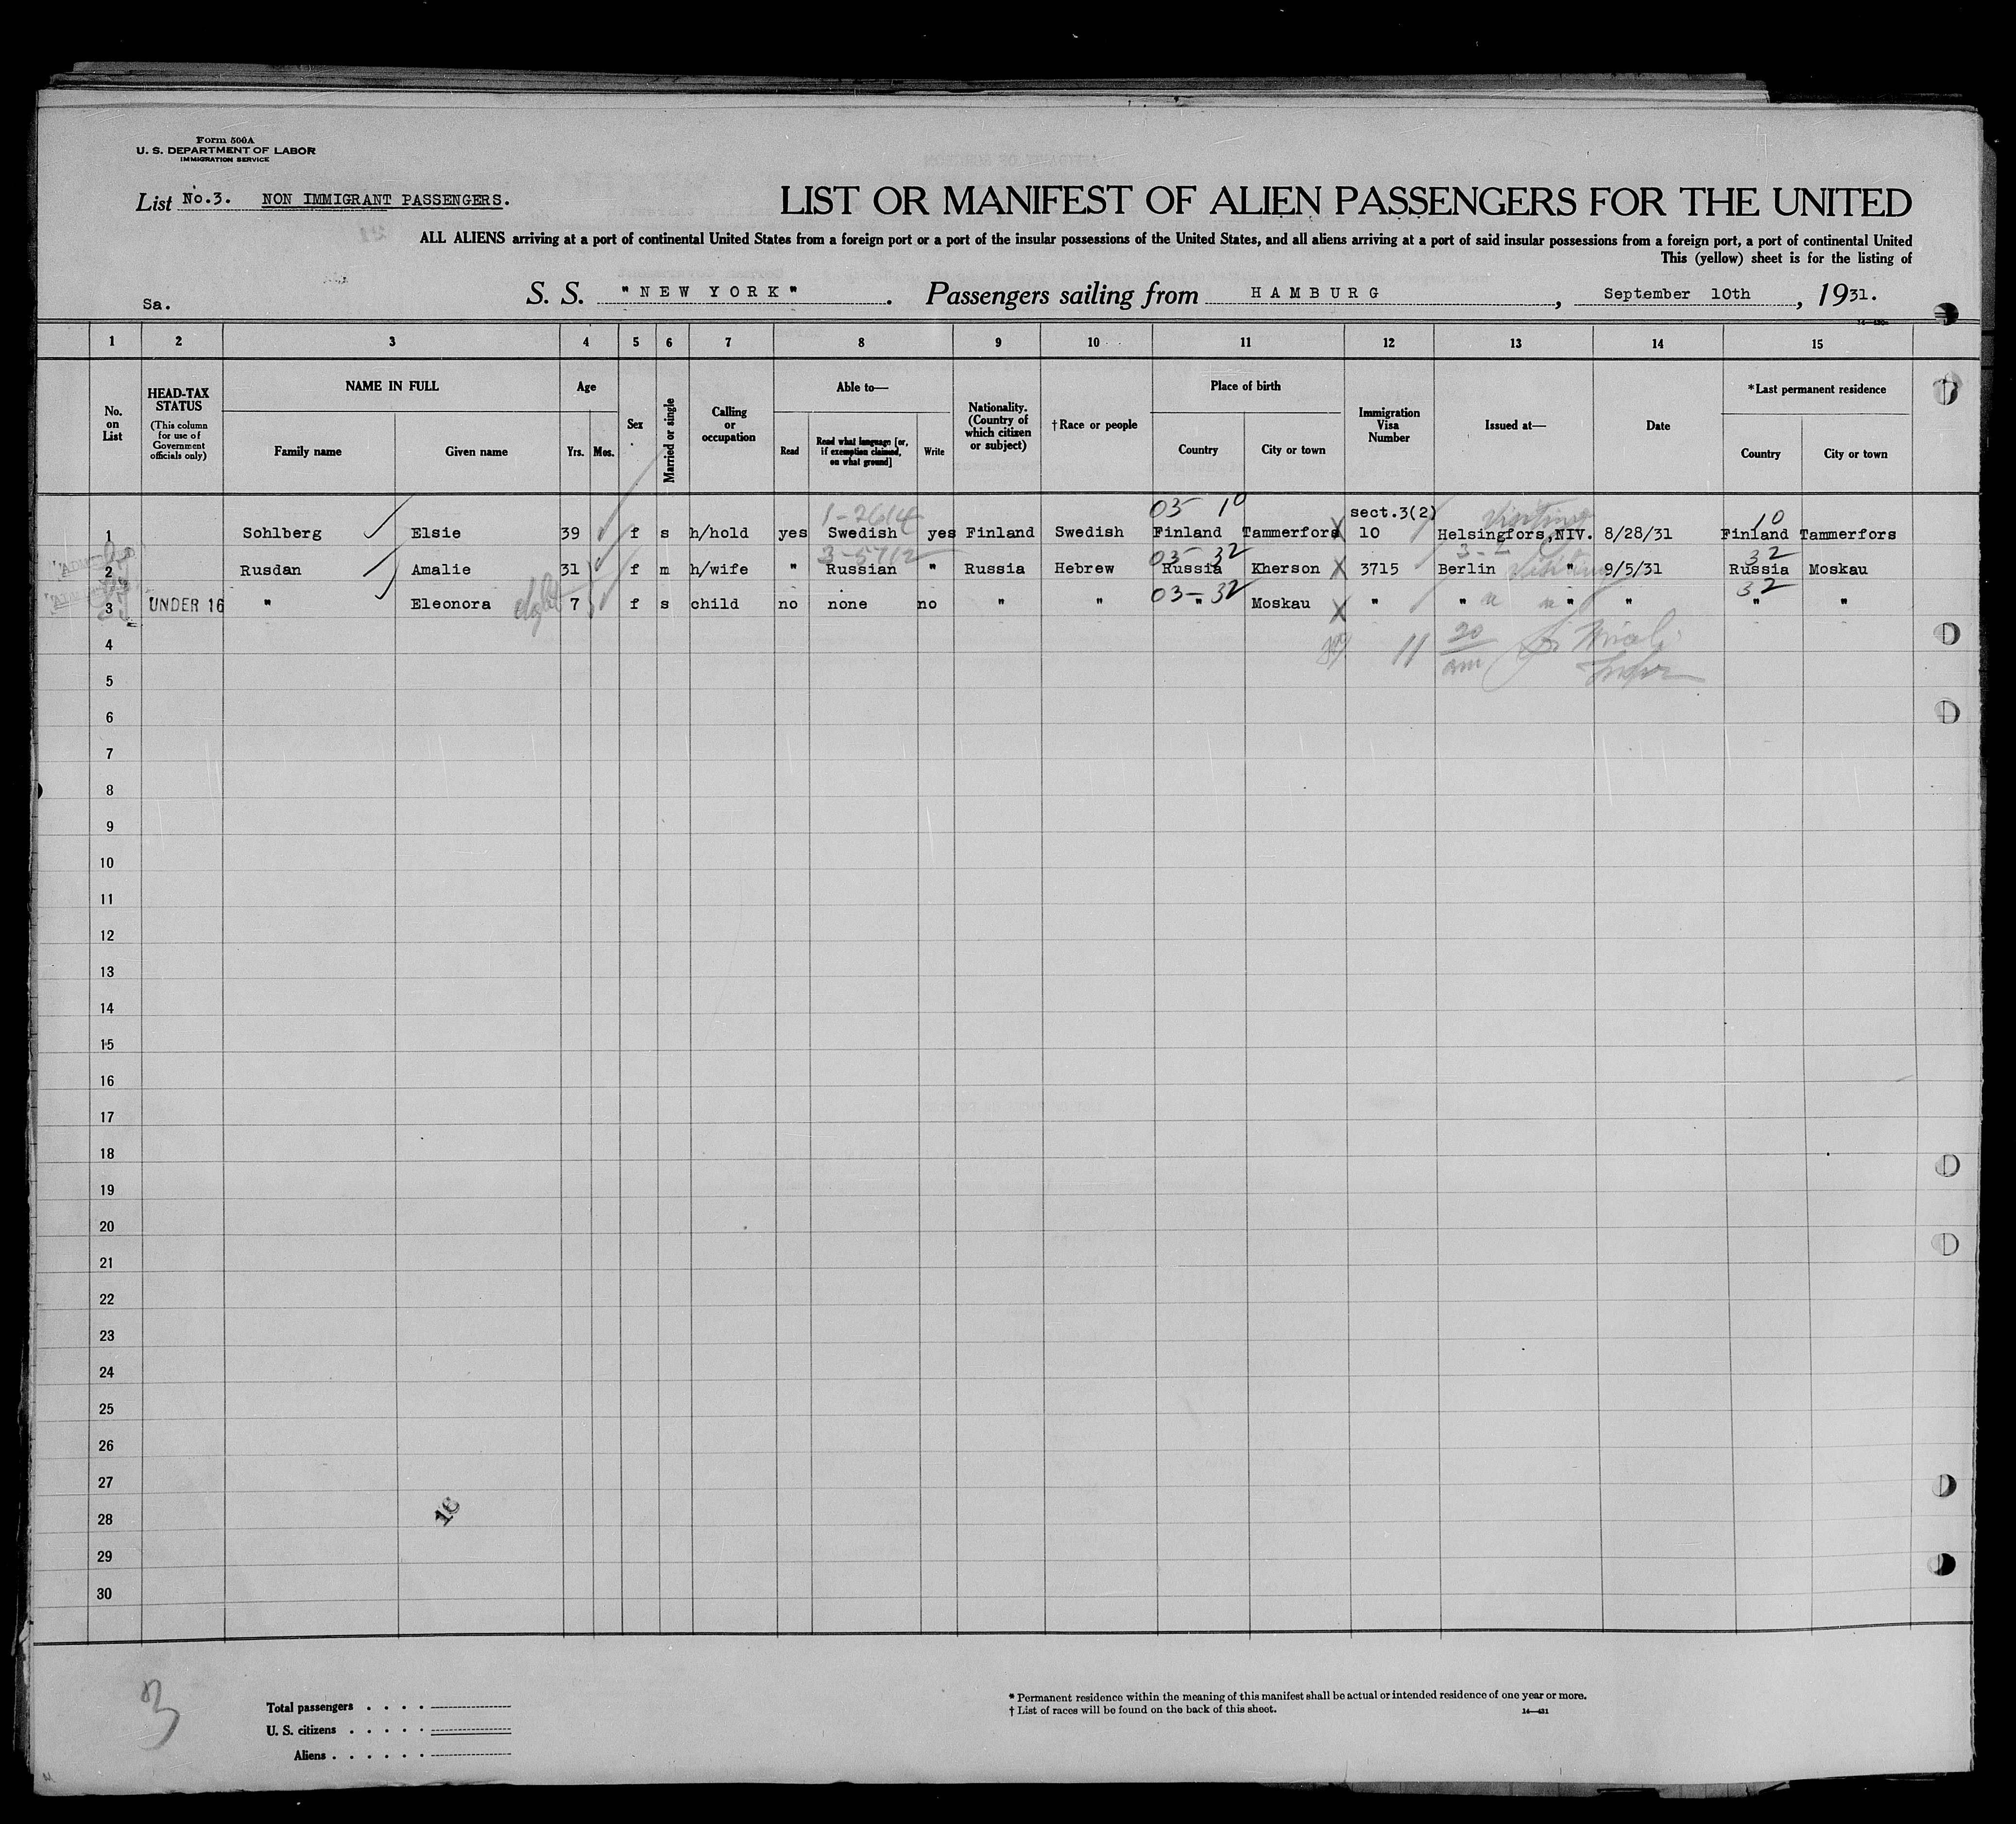 Form 500A
U. S. DEPARTMENT OF LABOR
IMMIGRATION SERVICE
List No.3. NON IMMIGRANT PASSENGERS.
LIST OR MANIFEST OF ALIEN PASSENGERS FOR THE UNITED
ALL ALIENS arriving at a port of continental United States from a foreign port or a port of the insular possessions of the United States, and all aliens arriving at a port of said insular possessions from a foreign port, a port of continental United
This (yellow) sheet is for the listing of
Sa.
S. S. "NEW YORK". Passengers sailing from HAMBURG, September 10th, 1931.
1 2 3 4 5 6 7 8 9 10 11 12 13 14 15
No. on List
HEAD-TAX STATUS
(This column for use of Government officials only)
NAME IN FULL
Family name
Given name
Age
Yrs.
Mos.
Sex
Married or single
Calling or occupation
Able to—
Read
Read what language [or, if exemption claimed, on what ground]
Write
Nationality. (Country of which citizen or subject)
†Race or people
Place of birth
Country
City or town
Immigration Visa Number
Issued at—
Date
*Last permanent residence
Country
City or town
1-2614 05 10 sect.3(2) Visiting 10
1 Sohlberg Elsie 39 f s h/hold yes Swedish yes Finland Swedish Finland Tammerfors 10 Helsingfors,NIV. 8/28/31 Finland Tammerfors
3-5712 03-32 3-2 Visiting 32
2 Rusdan Amalie 31 f m h/wife " Russian " Russia Hebrew Russia Kherson 3715 Berlin " 9/5/31 Russia Moskau
03-32 32
3 UNDER 16 " Eleonora 7 f s child no none no " " " Moskau " " " " " "
4 11 20/am
5
6
7
8
9
10
11
12
13
14
15
16
17
18
19
20
21
22
23
24
25
26
27
28
29
30
18
3
Total passengers
U. S. citizens
Aliens
* Permanent residence within the meaning of this manifest shall be actual or intended residence of one year or more.
† List of races will be found on the back of this sheet.
14—431